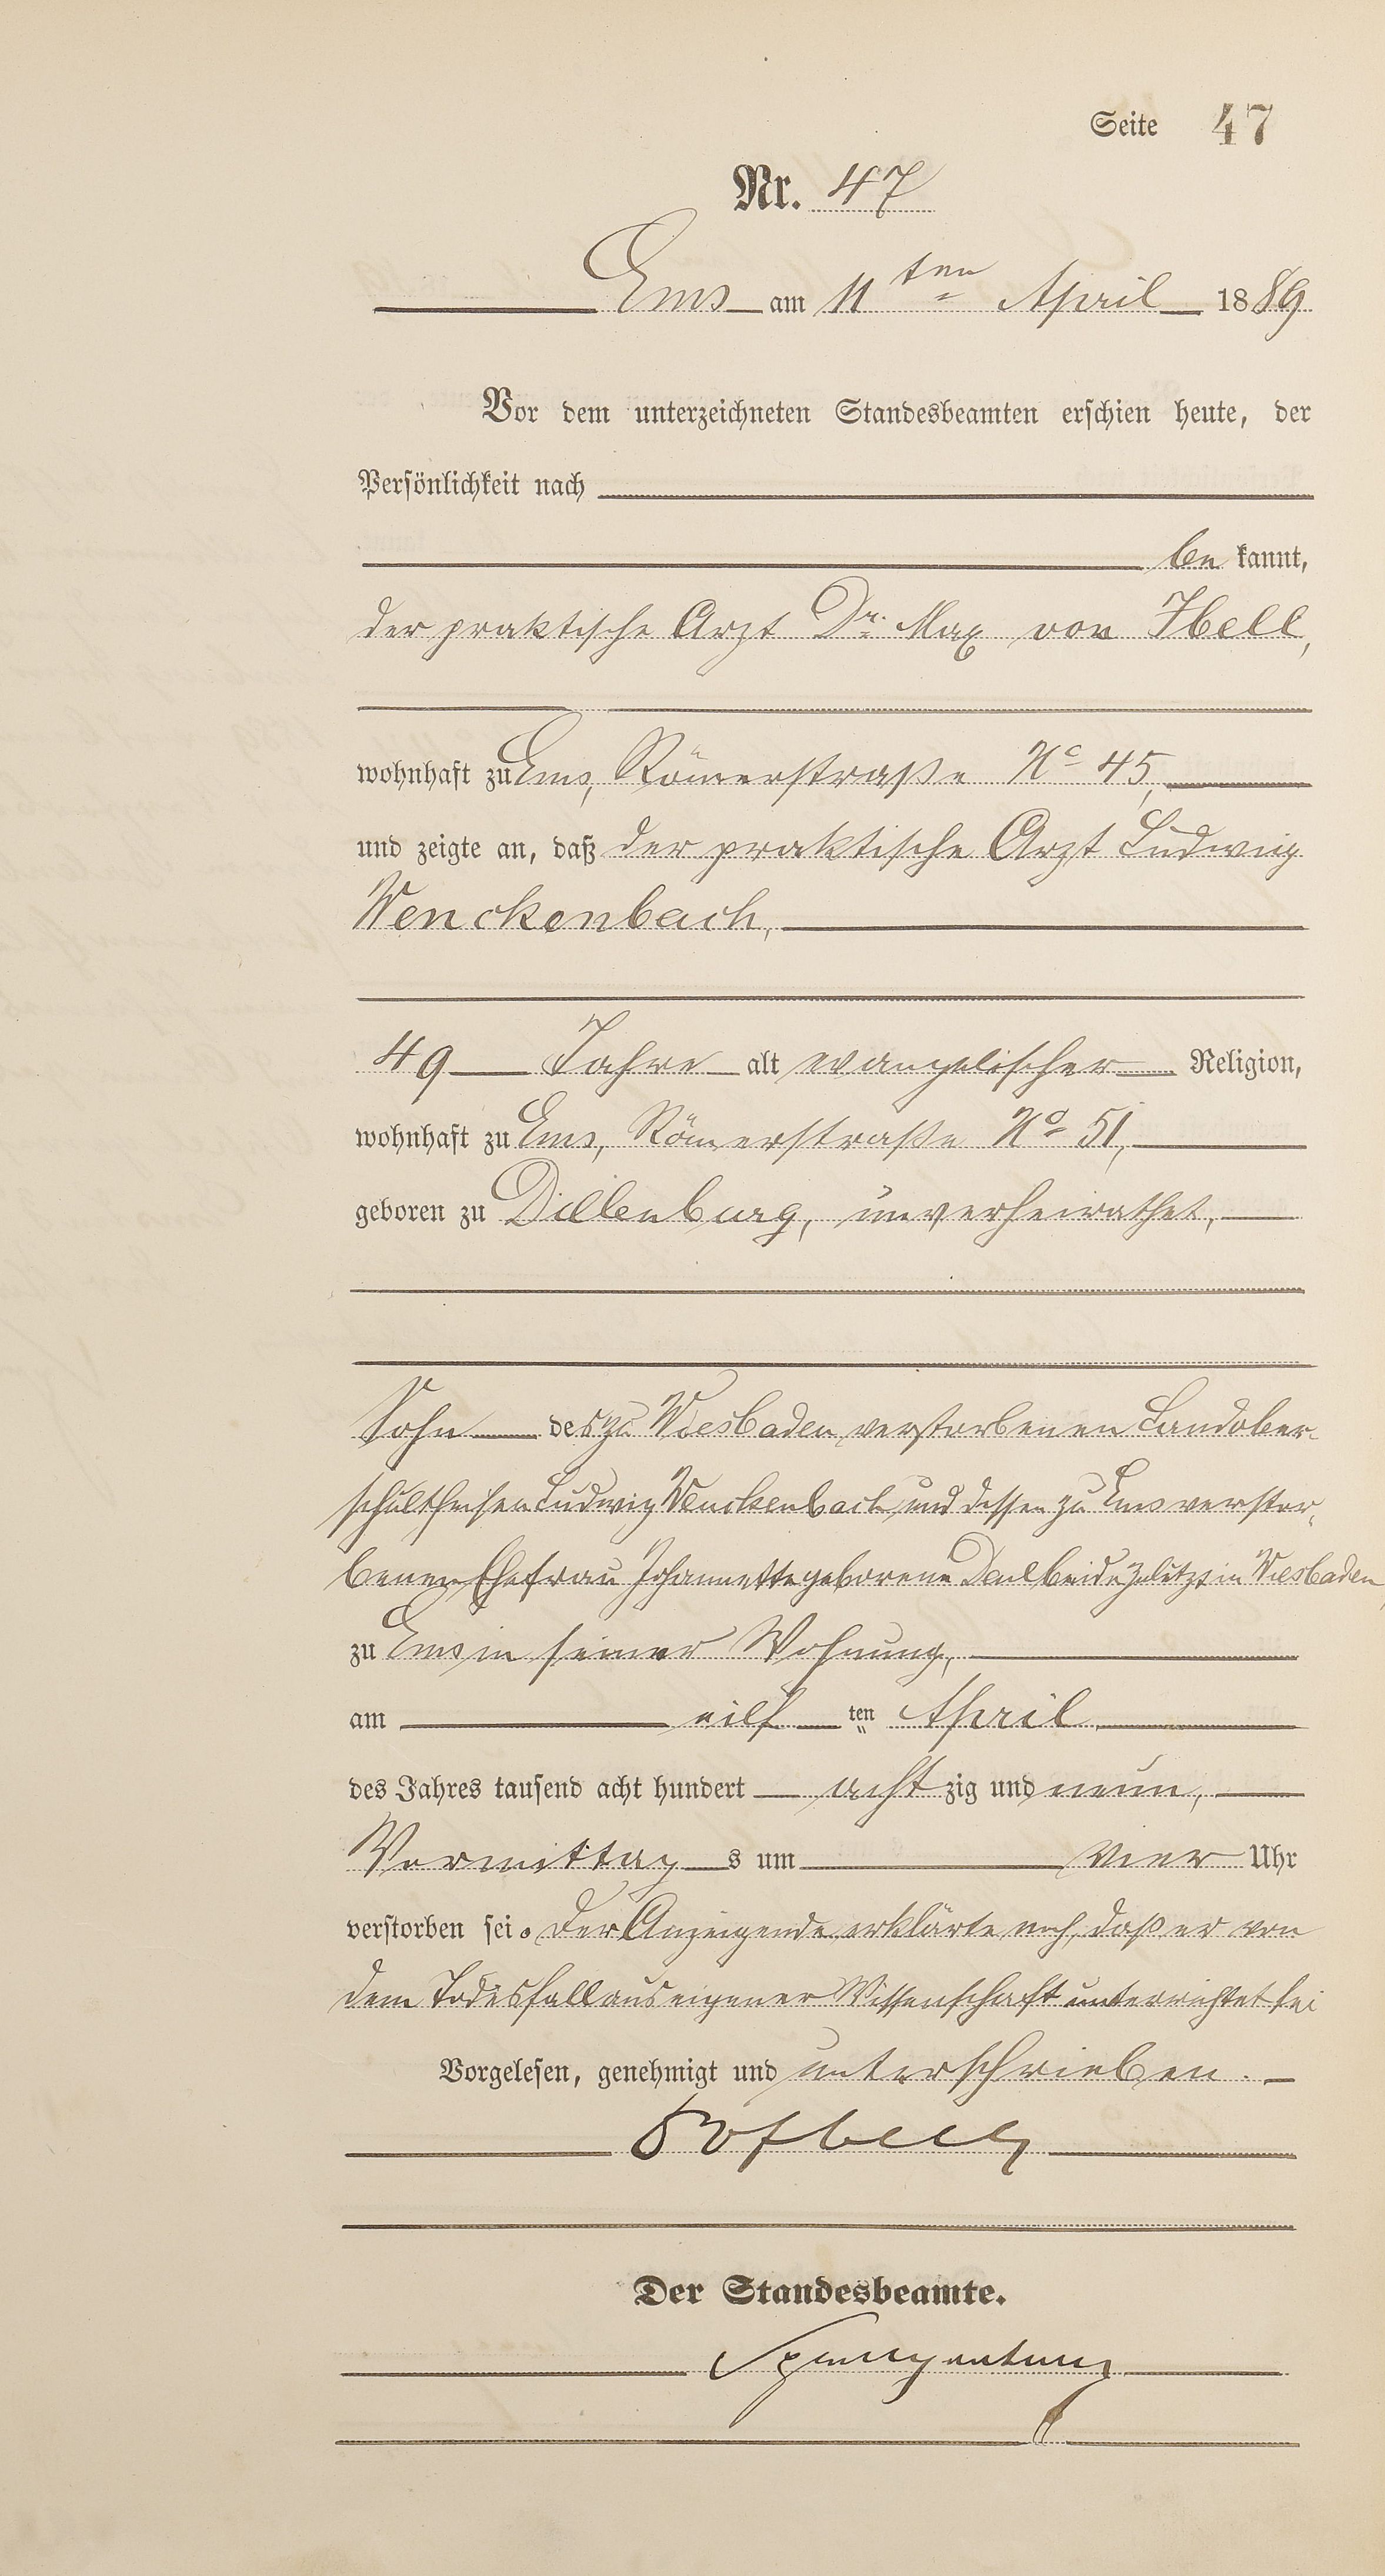 Seite 47
Nr. 47
Ems am 11ten April 1889
Vor dem unterzeichneten Standesbeamten erschien heute, der
Persönlichkeit nach
bekannt,
der praktische Arzt Dr. Max von Ibell,
wohnhaft zu Ems, Römerstraße No 45,
und zeigte an, daß der praktische Arzt Ludwig
Wenckenbach,
49 Jahre alt evangelischer Religion,
wohnhaft zu Ems, Römerstraße No 51,
geboren zu Dillenburg, unverheirathet,
Sohn des zu Wiesbaden verstorbenen Landober-
schultheisen Ludwig Wenckenbach und dessen zu Ems verstor-
benen Ehefrau Johannette geborene beide zuletzt in Wiesbaden,
zu Ems in seiner Wohnung,
am eilften April
des Jahres tausend acht hundert achtzig und neun,
Vormittags um vier Uhr
verstorben sei. Der Anzeigende erklärte noch, daß er von
dem Todesfall aus eigener Wissenschaft unterrichtet sei
Vorgelesen, genehmigt und unterschrieben.
Der Standesbeamte.